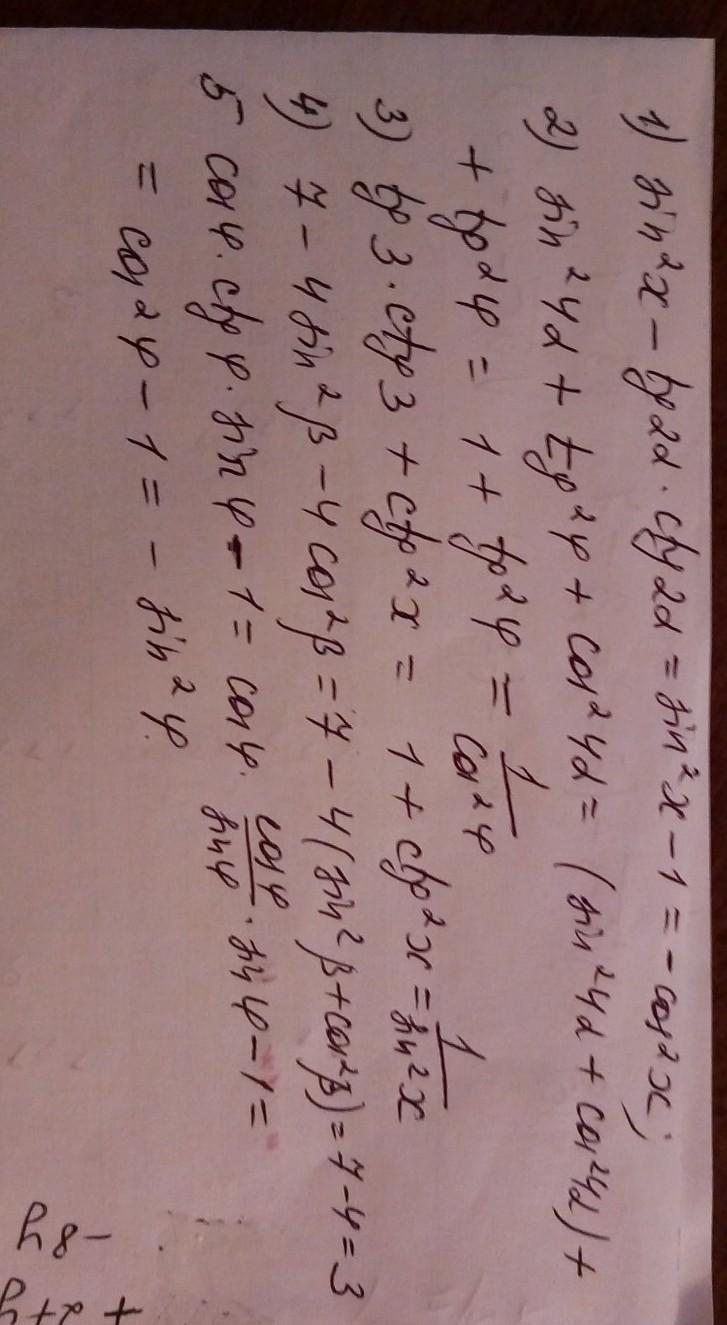 1) sin²x - tg2α · ctg2α = sin²x - 1 = - cos²x;
2) sin²4α + tg²φ + cos²4α = (sin²4α + cos²4α) +
+ tg²φ = 1 + tg²φ = 1/cos²φ
3) tg3 · ctg3 + ctg²x = 1 + ctg²x = 1/sin²x
4) 7 - 4sin²β - 4cos²β = 7 - 4(sin²β + cos²β) = 7 - 4 = 3
5 cosφ · ctgφ · sinφ - 1 = cosφ · cosφ/sinφ · sinφ - 1 =
= cos²φ - 1 = - sin²φ.
-8y